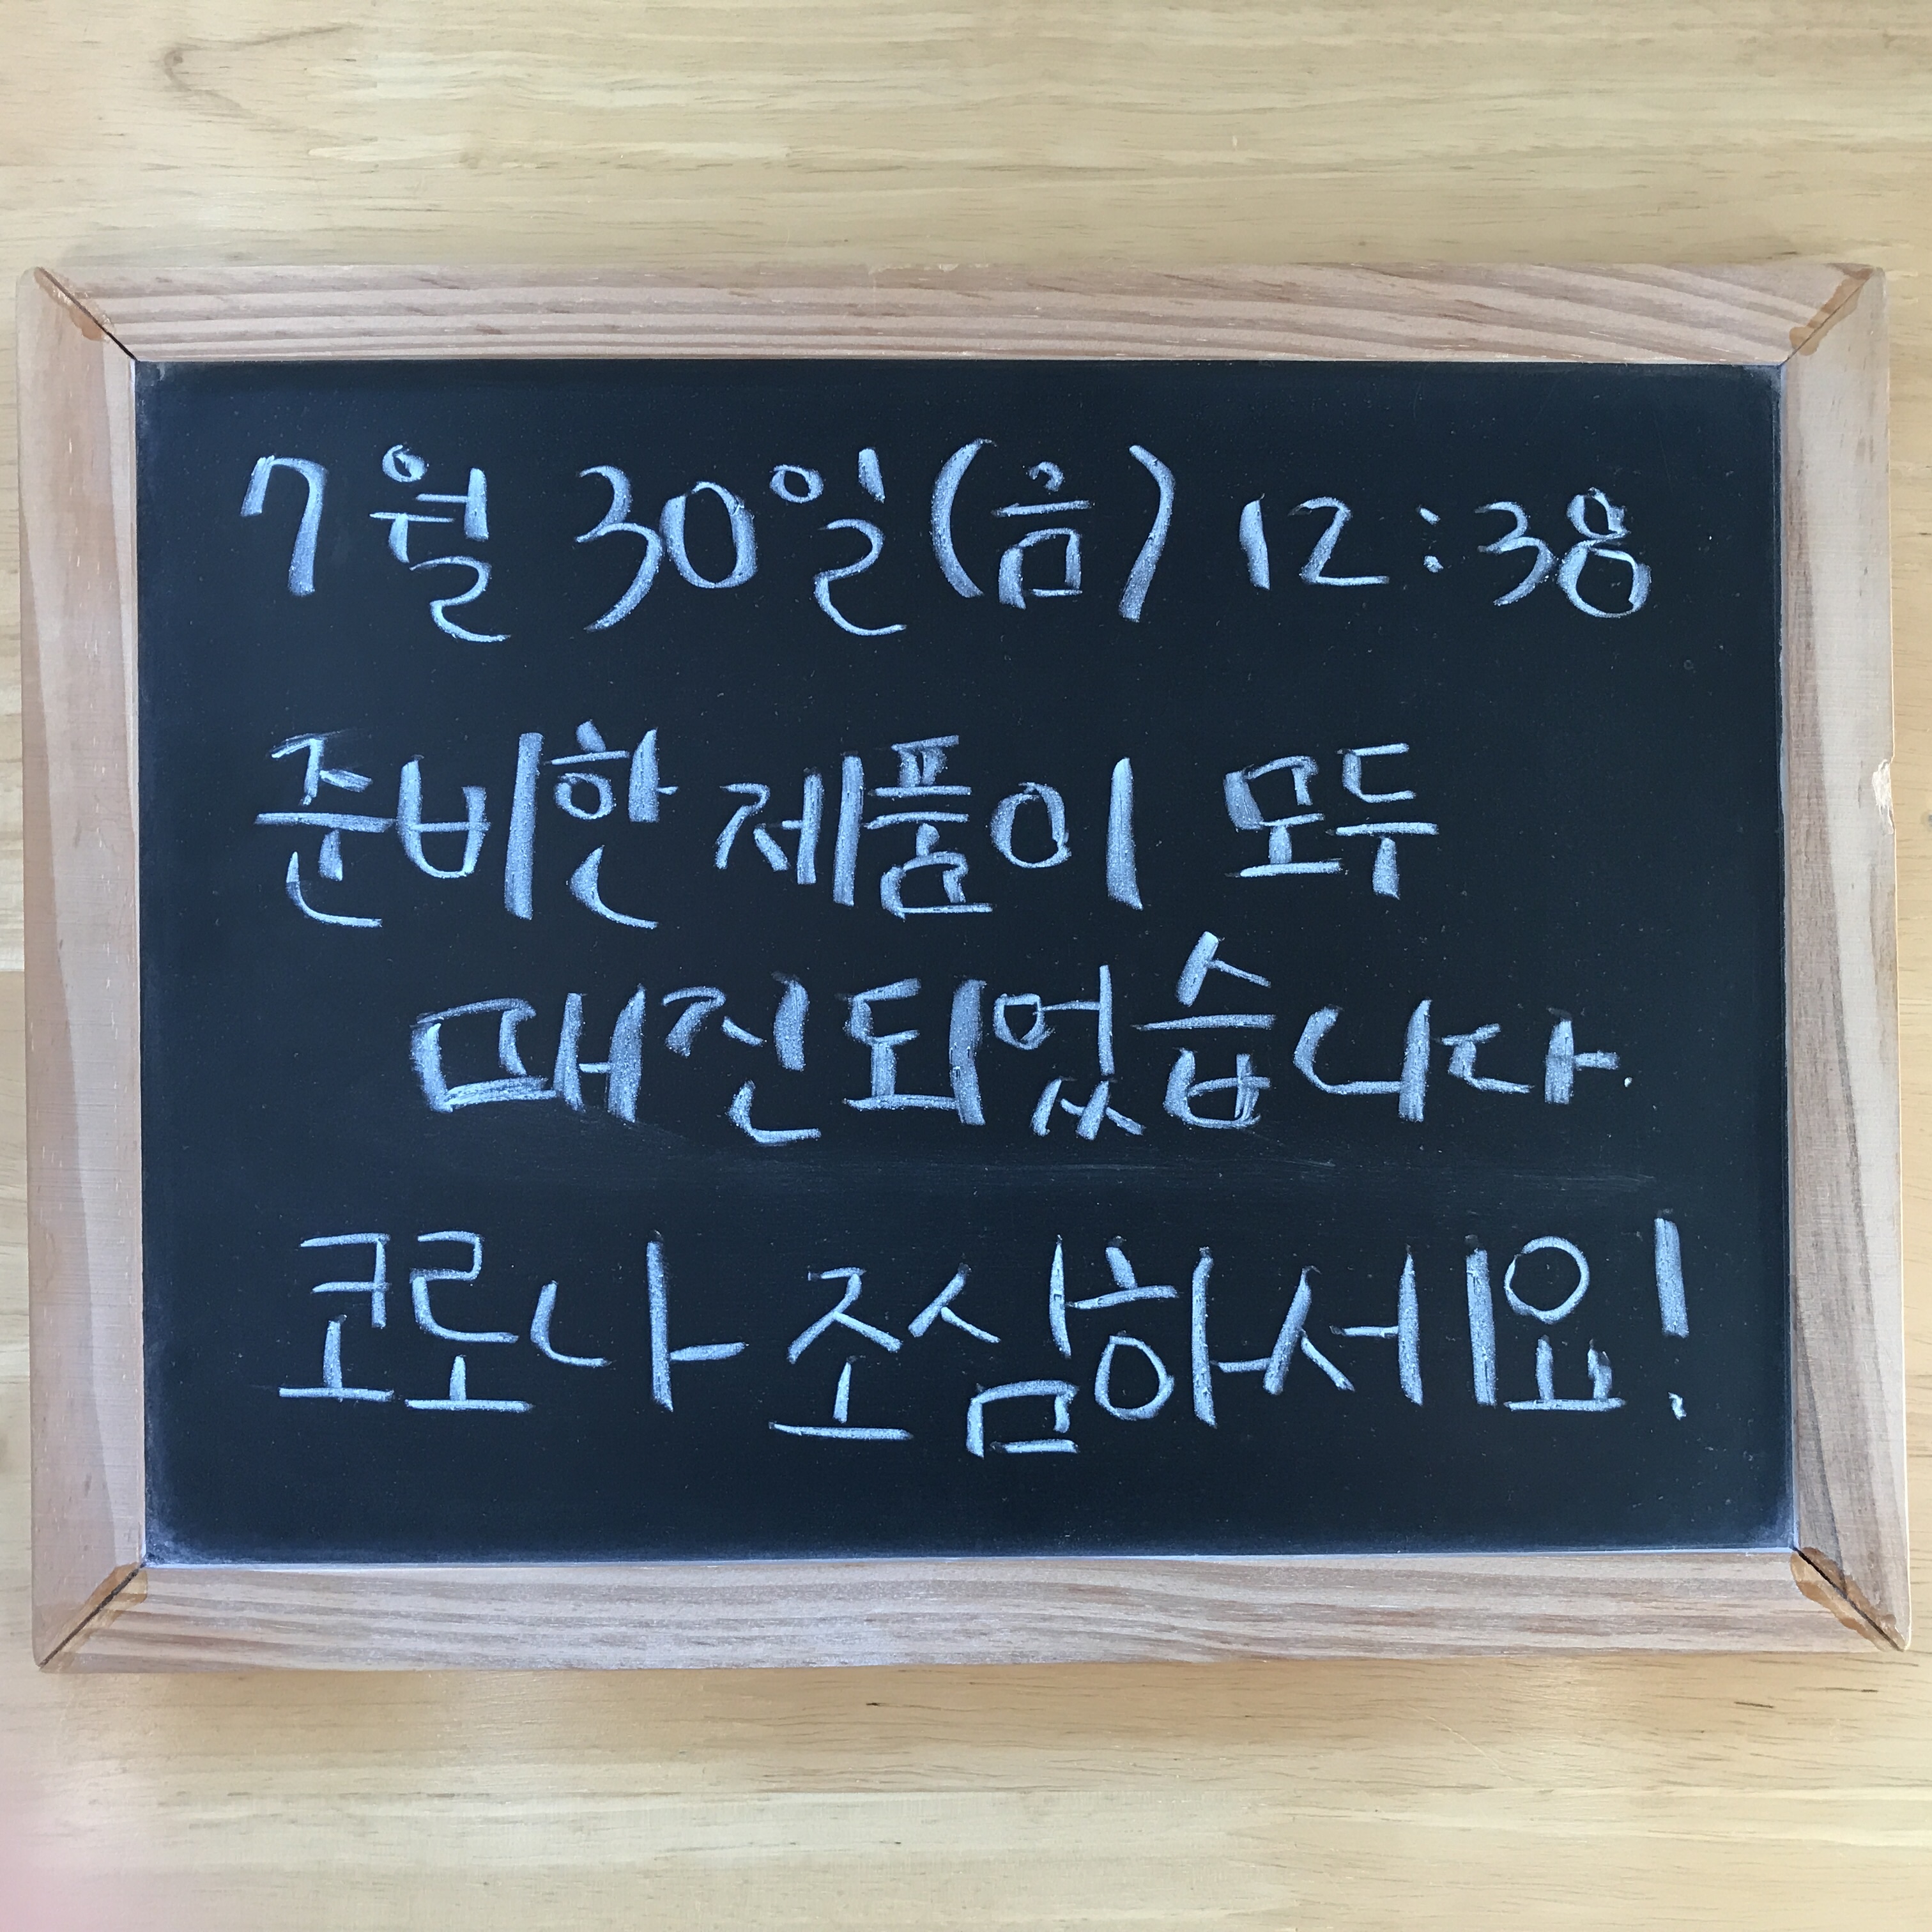 7월 30일(금) 12:38
준비한 제품이 모두
매진되었습니다.
코로나 조심하세요!